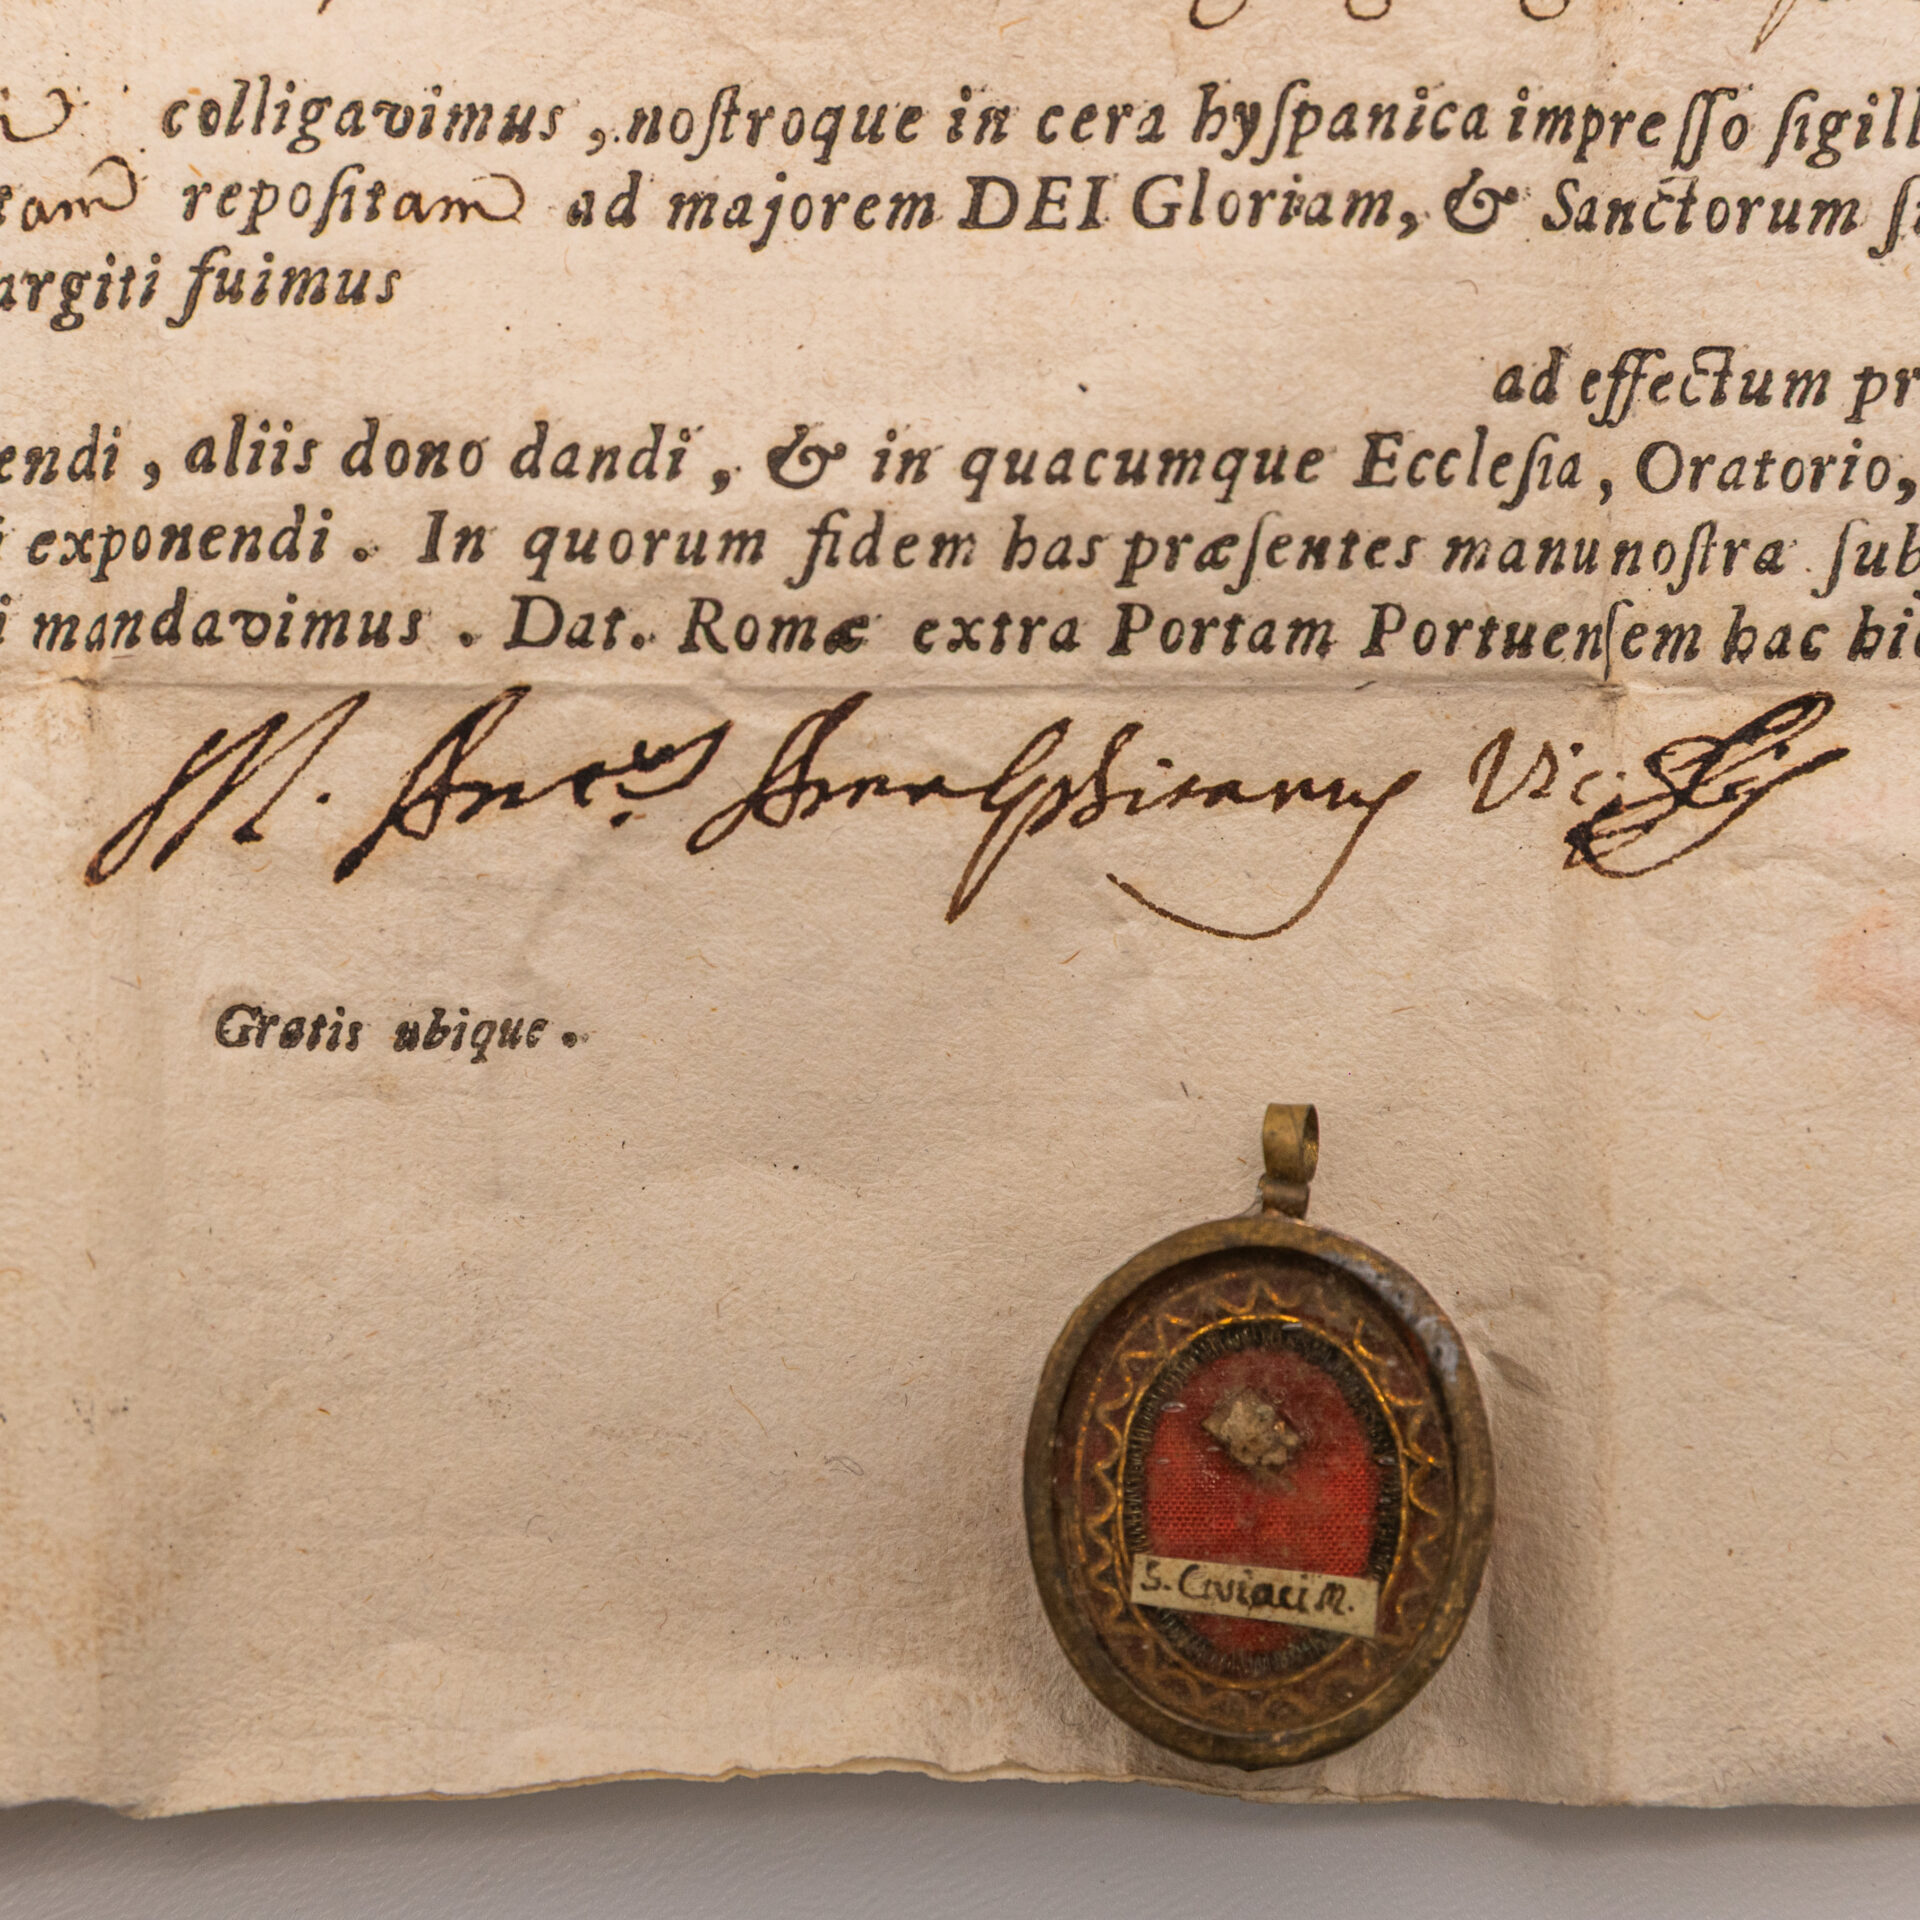 colligavimus, noſtroque in cera hyſpanica impreſſo ſigill
tam repoſitam ad majorem DEI Gloriam, & Sanctorum ſu
argiti fuimus
ad effectum pr
endi, aliis dono dandi, & in quacumque Eccleſia, Oratorio,
i exponendi. In quorum fidem has præſentes manu noſtra ſub
i mandavimus. Dat. Romæ extra Portam Portuenſem hac die
M. Ant.us Vic.
Gratis ubique.
S. Ciriaci M.